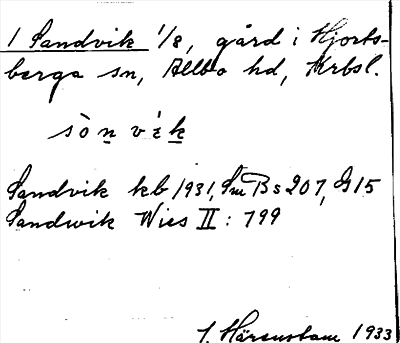 1 Sandvik 1/8, gård i Hjorts-
berga sn, Allbo hd, Krbsl.
sòn vik
Sandvik kb 1931, Sm Bs 207, G15
Sandwik Wies II: 799
1933